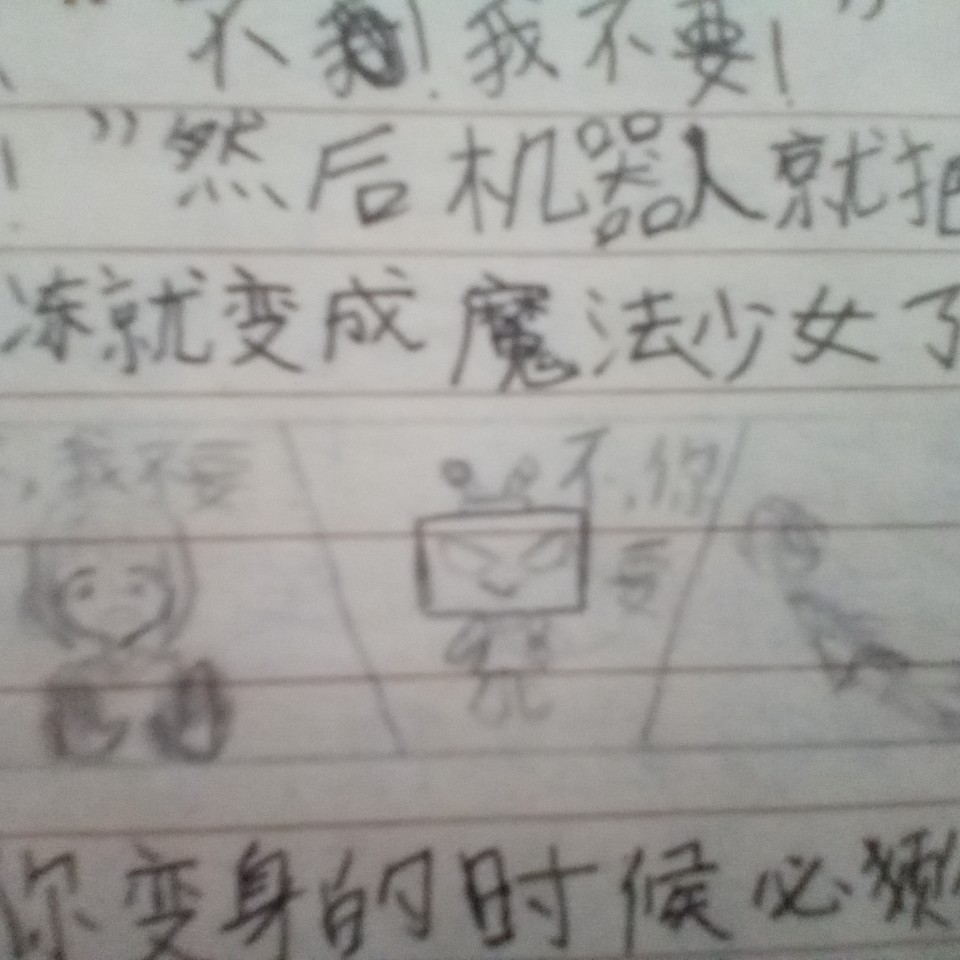 不！我不要！”
！”然后机器人就把
冻就变成魔法少女了
，我不要
不，你
要
你变身的时候必须